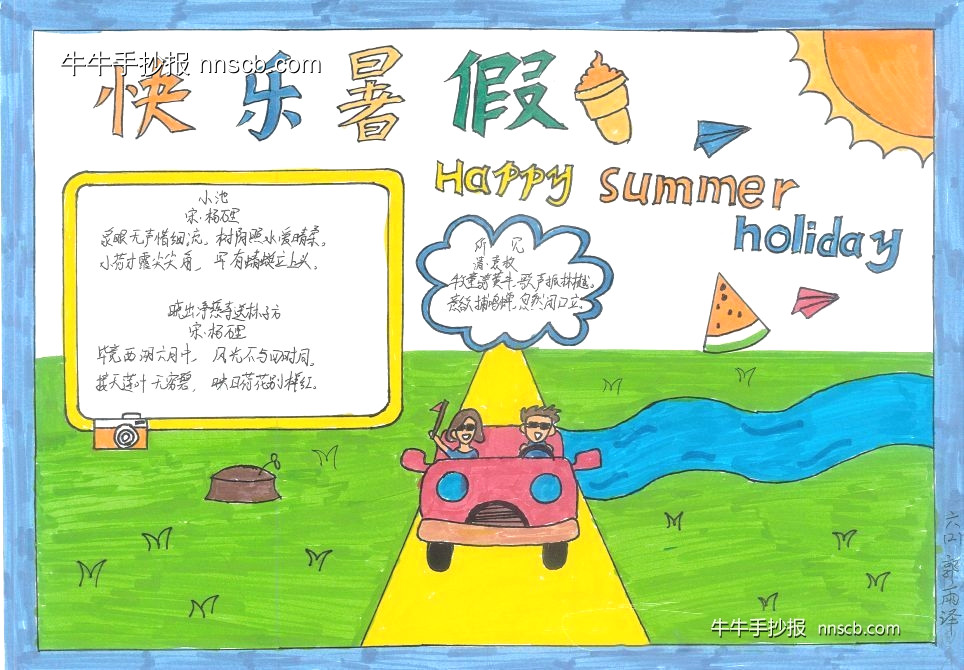 牛牛手抄报 nnscb.com
快乐暑假
Happy summer
holiday
小池
宋·杨万里
泉眼无声惜细流，树阴照水爱晴柔。
小荷才露尖尖角，早有蜻蜓立上头。
晓出净慈寺送林子方
宋·杨万里
毕竟西湖六月中，风光不与四时同。
接天莲叶无穷碧，映日荷花别样红。
所见
清·袁枚
牧童骑黄牛，歌声振林樾。
意欲捕鸣蝉，忽然闭口立。
六(2) 郭雨泽
牛牛手抄报 nnscb.com